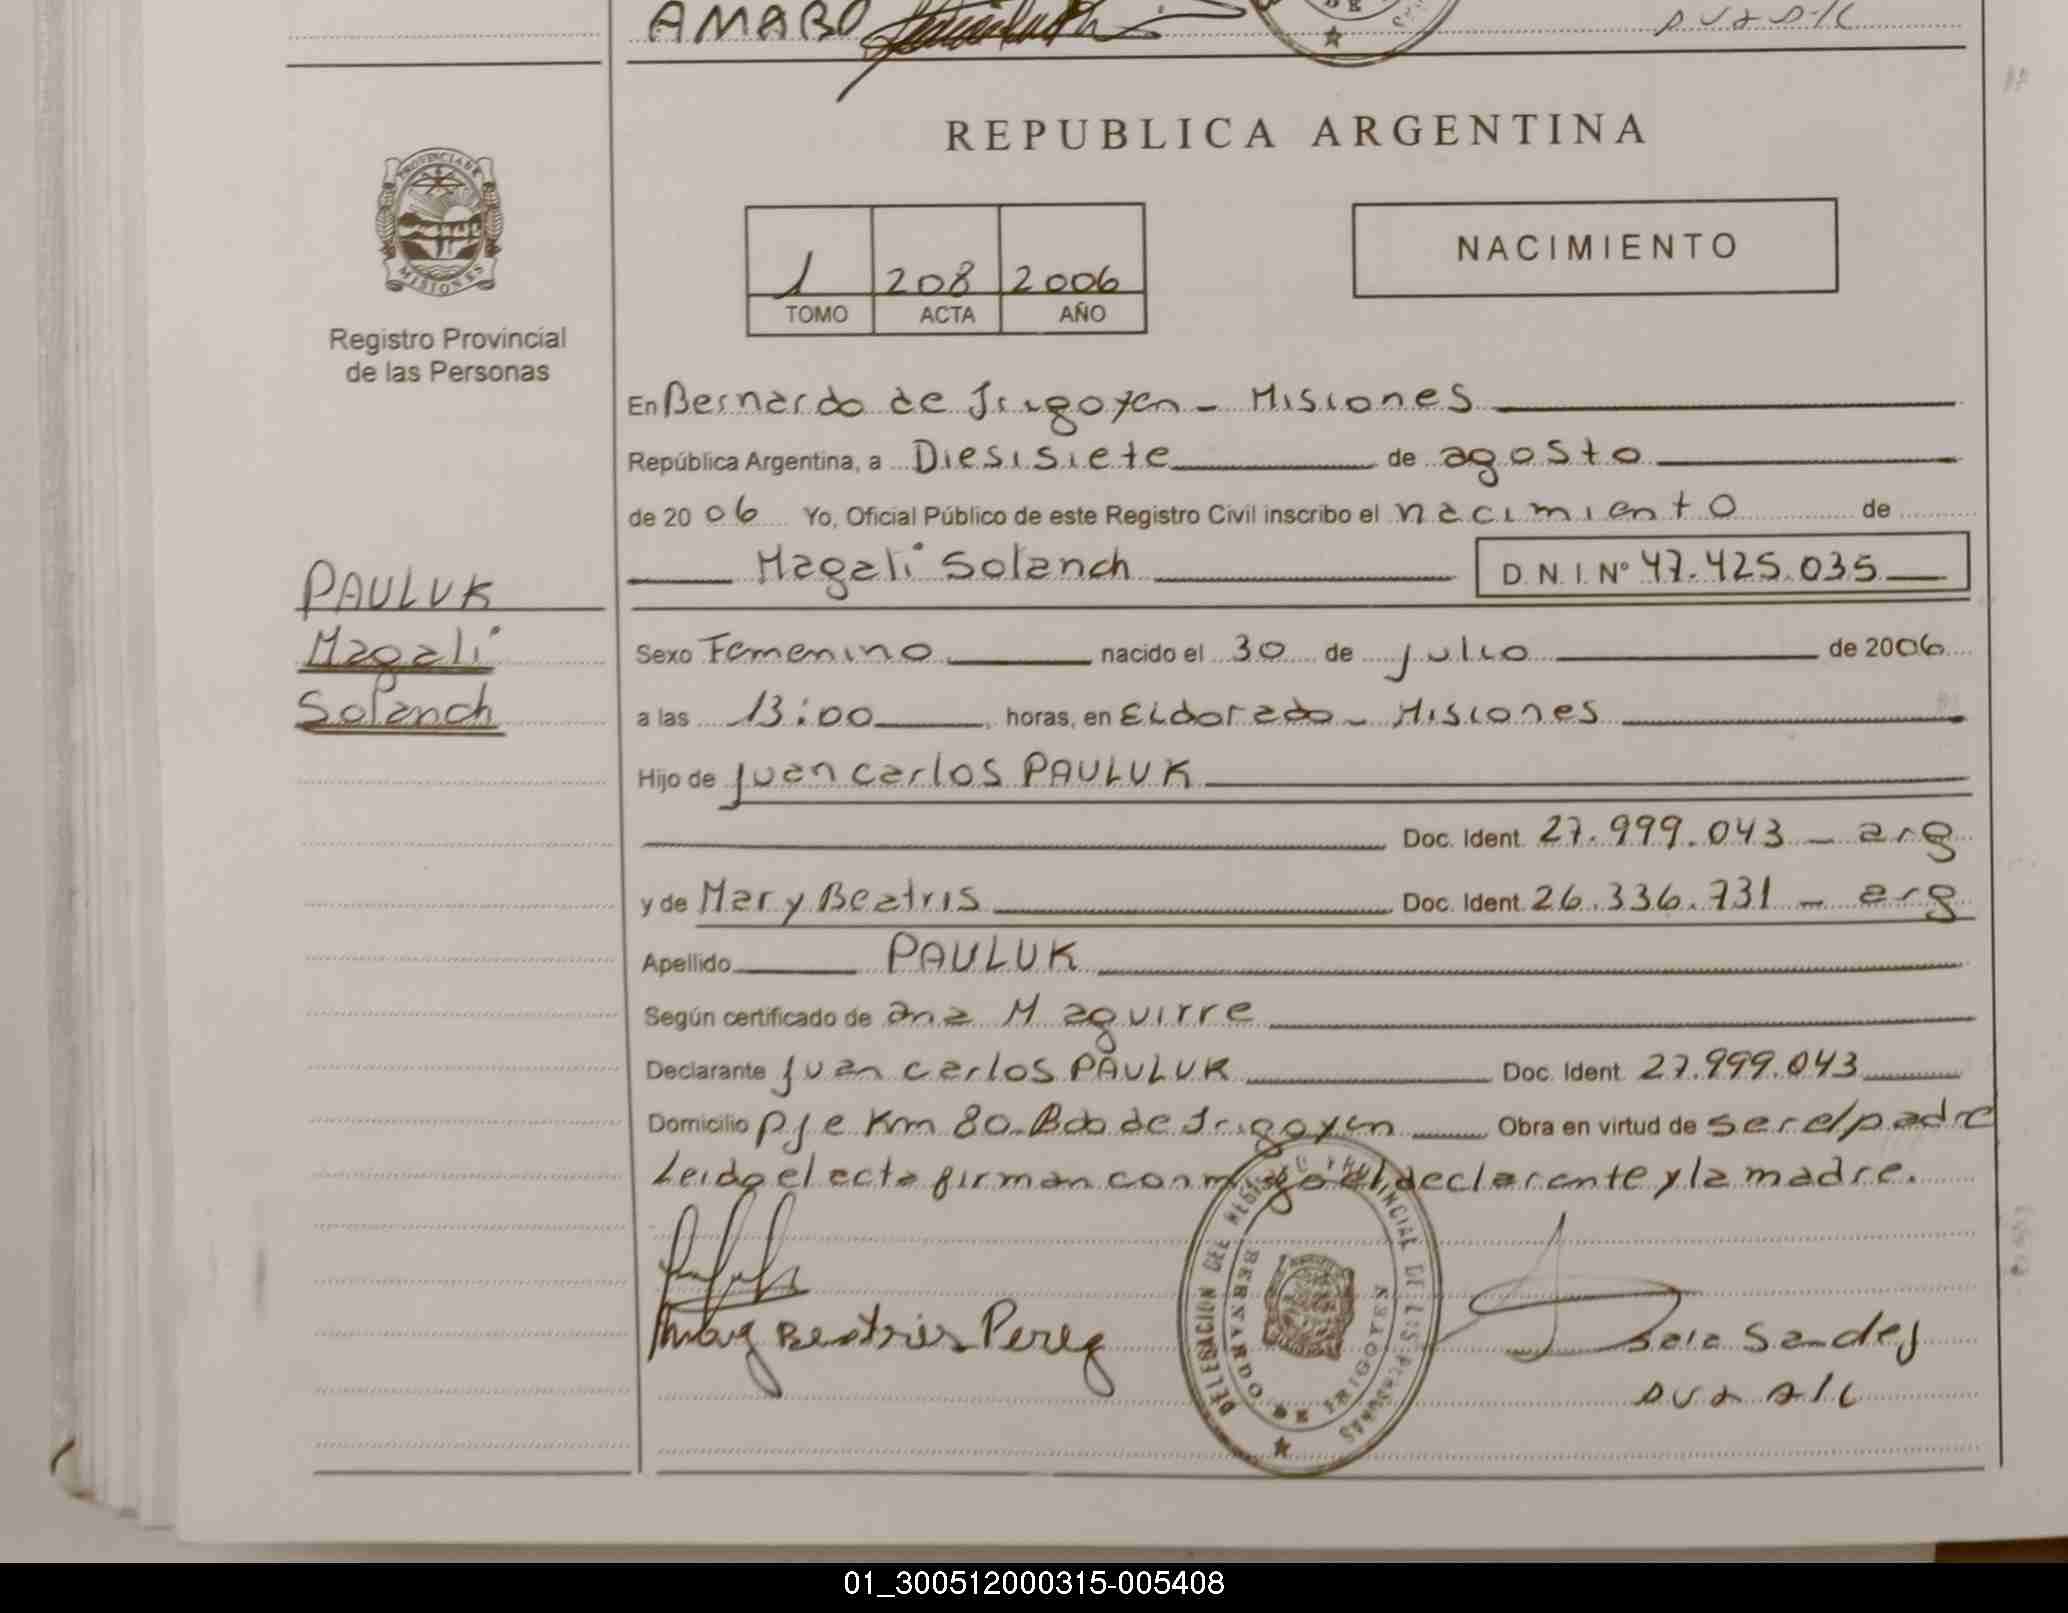 AMARO
DVD A/C
REPUBLICA ARGENTINA
PROVINCIA DE
MISIONES
Registro Provincial
de las Personas
1 208 2006
TOMO ACTA AÑO
NACIMIENTO
En Bernardo de Irigoyen - Misiones
República Argentina, a Diesisiete de agosto
de 2006 Yo, Oficial Público de este Registro Civil inscribo el nacimiento de
Magali Solanch D.N.I. Nº 47.425.035
PAULUK
Magali
Solanch
Sexo Femenino nacido el 30 de julio de 2006
a las 13:00 horas, en Eldorado - Misiones
Hijo de Juan Carlos PAULUK
Doc. Ident. 27.999.043 - arg
y de Mary Beatris Doc. Ident. 26.336.731 - arg
Apellido PAULUK
Según certificado de Ana M aguirre
Declarante Juan Carlos PAULUK Doc. Ident. 27.999.043
Domicilio Pje Km 80 Bdo de Irigoyen Obra en virtud de ser el padre
Leido el acta firman conmigo el declarante y la madre.
Mary Beatris Perez
DELEGACION DEL REGISTRO PROVINCIAL DE LAS PERSONAS
BERNARDO DE IRIGOYEN
01_300512000315-005408